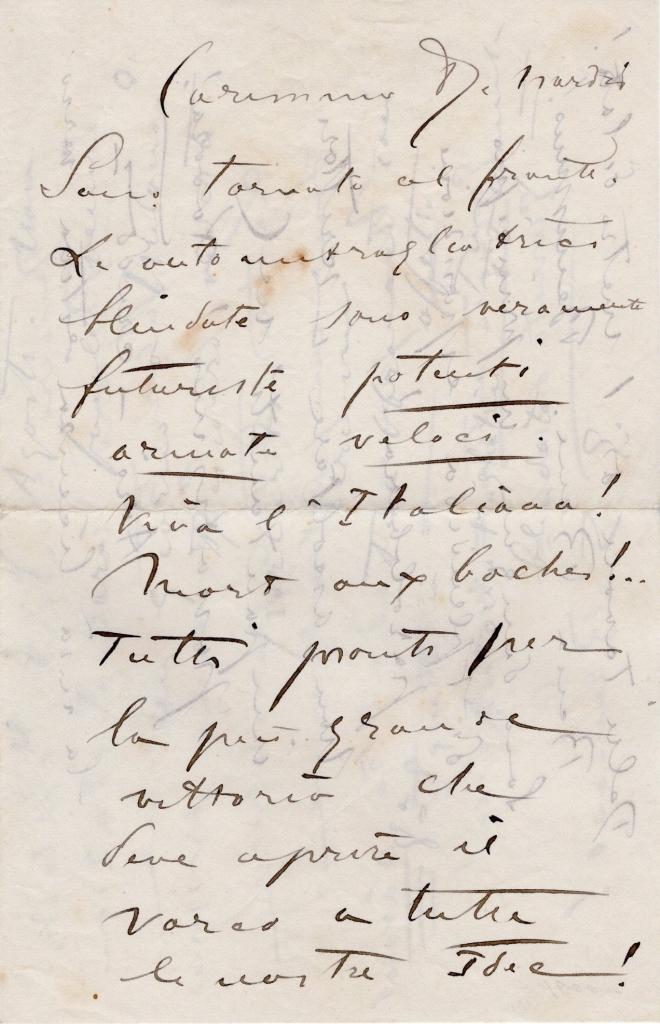 Carissimo De Nardis
Sono tornato al fronte.
Le automitragliatrici
blindate sono veramente
futuriste potenti
armate veloci.
Viva l'Italiaaa!
Mort aux boches!..
Tutti pronti per
la più grande
vittoria che
deve aprire il
varco a tutte
le nostre Idee!